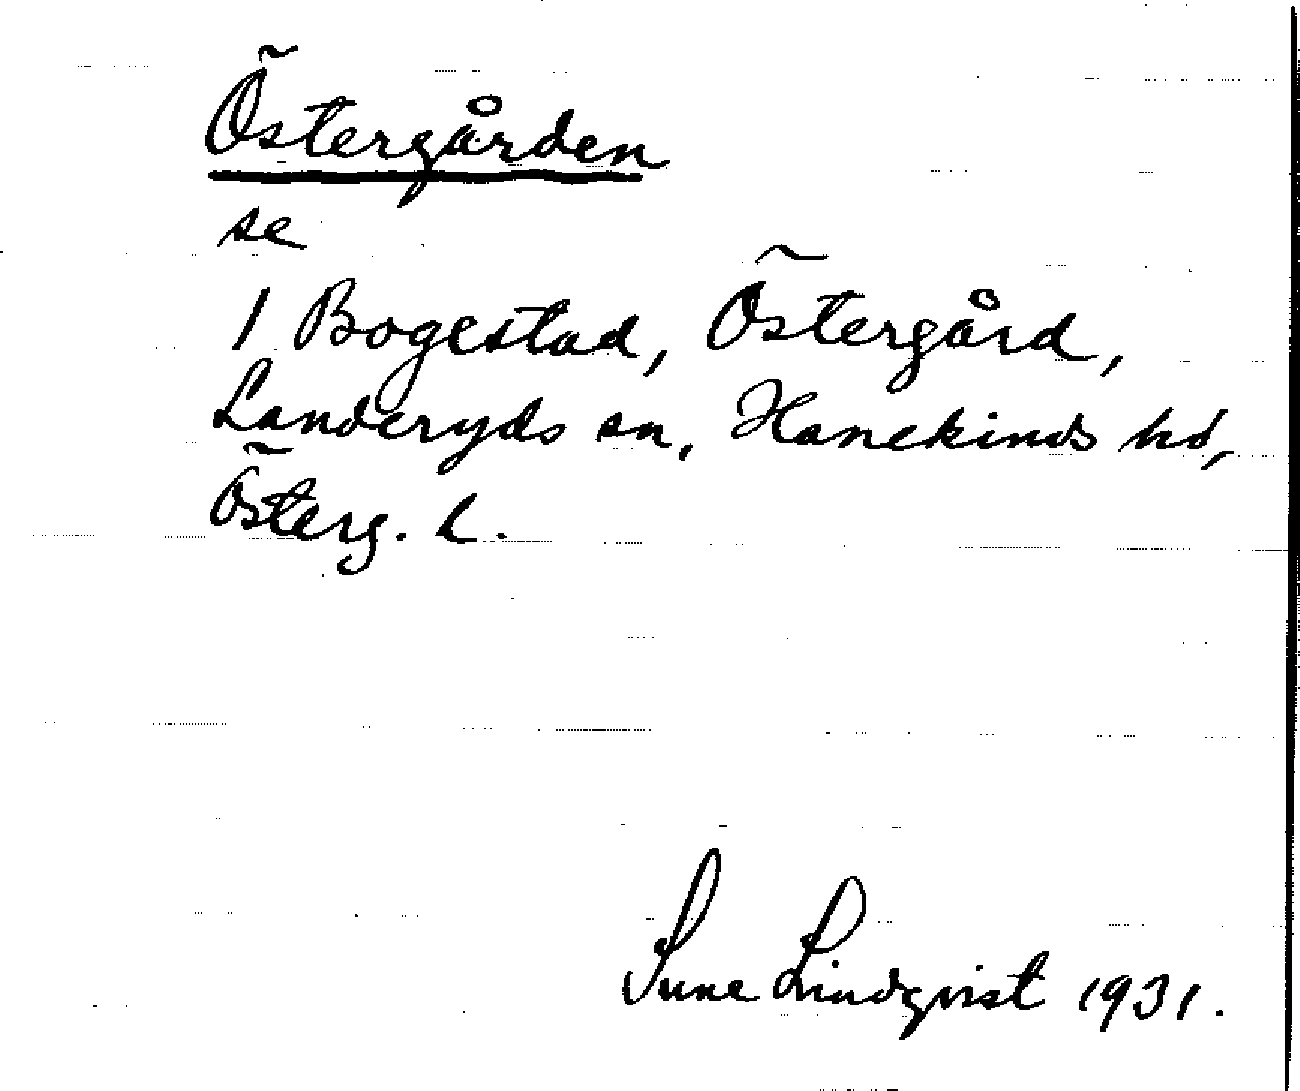 Östergården
se
1 Bogestad, Östergård,
Landeryds sn, Hanekinds hd,
Österg. l.
Sune Lindqvist 1931.